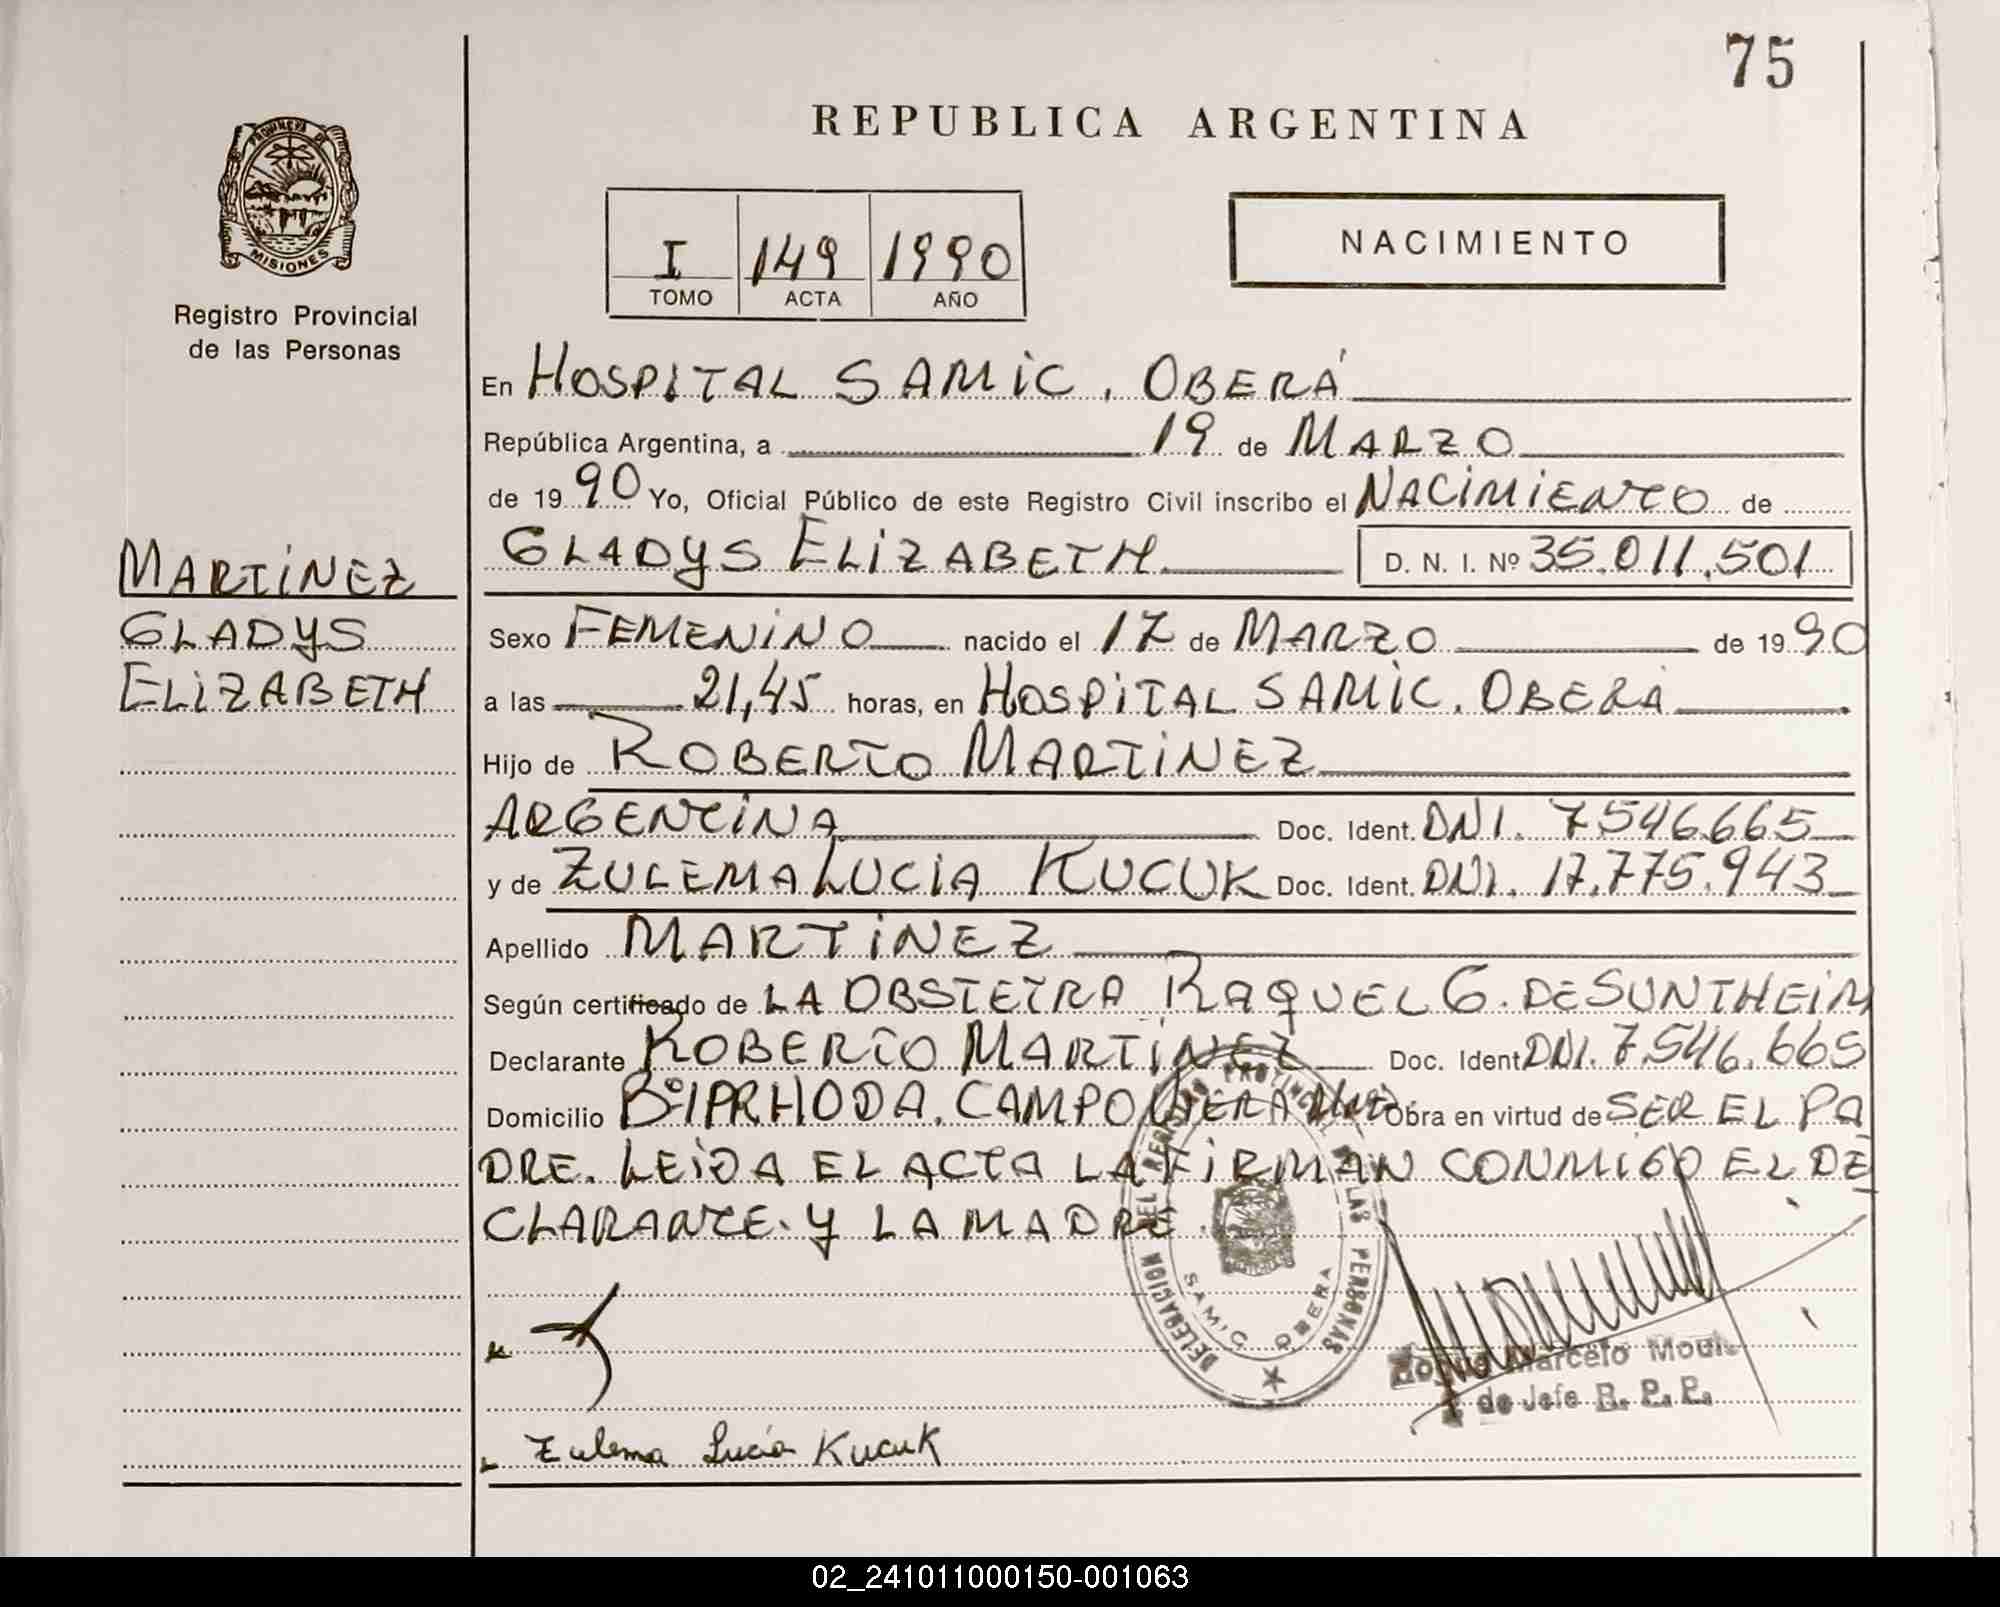 75
REPUBLICA ARGENTINA
PROVINCIA DE
MISIONES
Registro Provincial
de las Personas
I 149 1990
TOMO ACTA AÑO
NACIMIENTO
En HOSPITAL SAMIC. OBERÁ
República Argentina, a 19 de MARZO
de 1990 Yo, Oficial Público de este Registro Civil inscribo el NACIMIENTO de
GLADYS ELIZABETH D. N. I. Nº 35.011.501
MARTINEZ
GLADYS
ELIZABETH
Sexo FEMENINO nacido el 17 de MARZO de 1990
a las 21,45 horas, en HOSPITAL SAMIC. OBERA
Hijo de ROBERTO MARTINEZ
ARGENTINA Doc. Ident. DNI. 7.546.665
y de ZULEMA LUCIA KUCUK Doc. Ident. DNI. 17.775.943
Apellido MARTINEZ
Según certificado de LA OBSTETRA RAQUEL G. DE SUNTHEIM
Declarante ROBERTO MARTINEZ Doc. Ident DNI. 7.546.665
Domicilio Bº IPRHODA. CAMPO VIERA Obra en virtud de SER EL PA
DRE. LEIDA EL ACTA LA FIRMAN CONMIGO EL DE
CLARANTE. Y LA MADRE.
DELEGACION DEL REGISTRO PROVINCIAL DE LAS PERSONAS
SAMIC OBERA
Marcelo
de Jefe R. P. P.
Zulema Lucia Kucuk
02_241011000150-001063